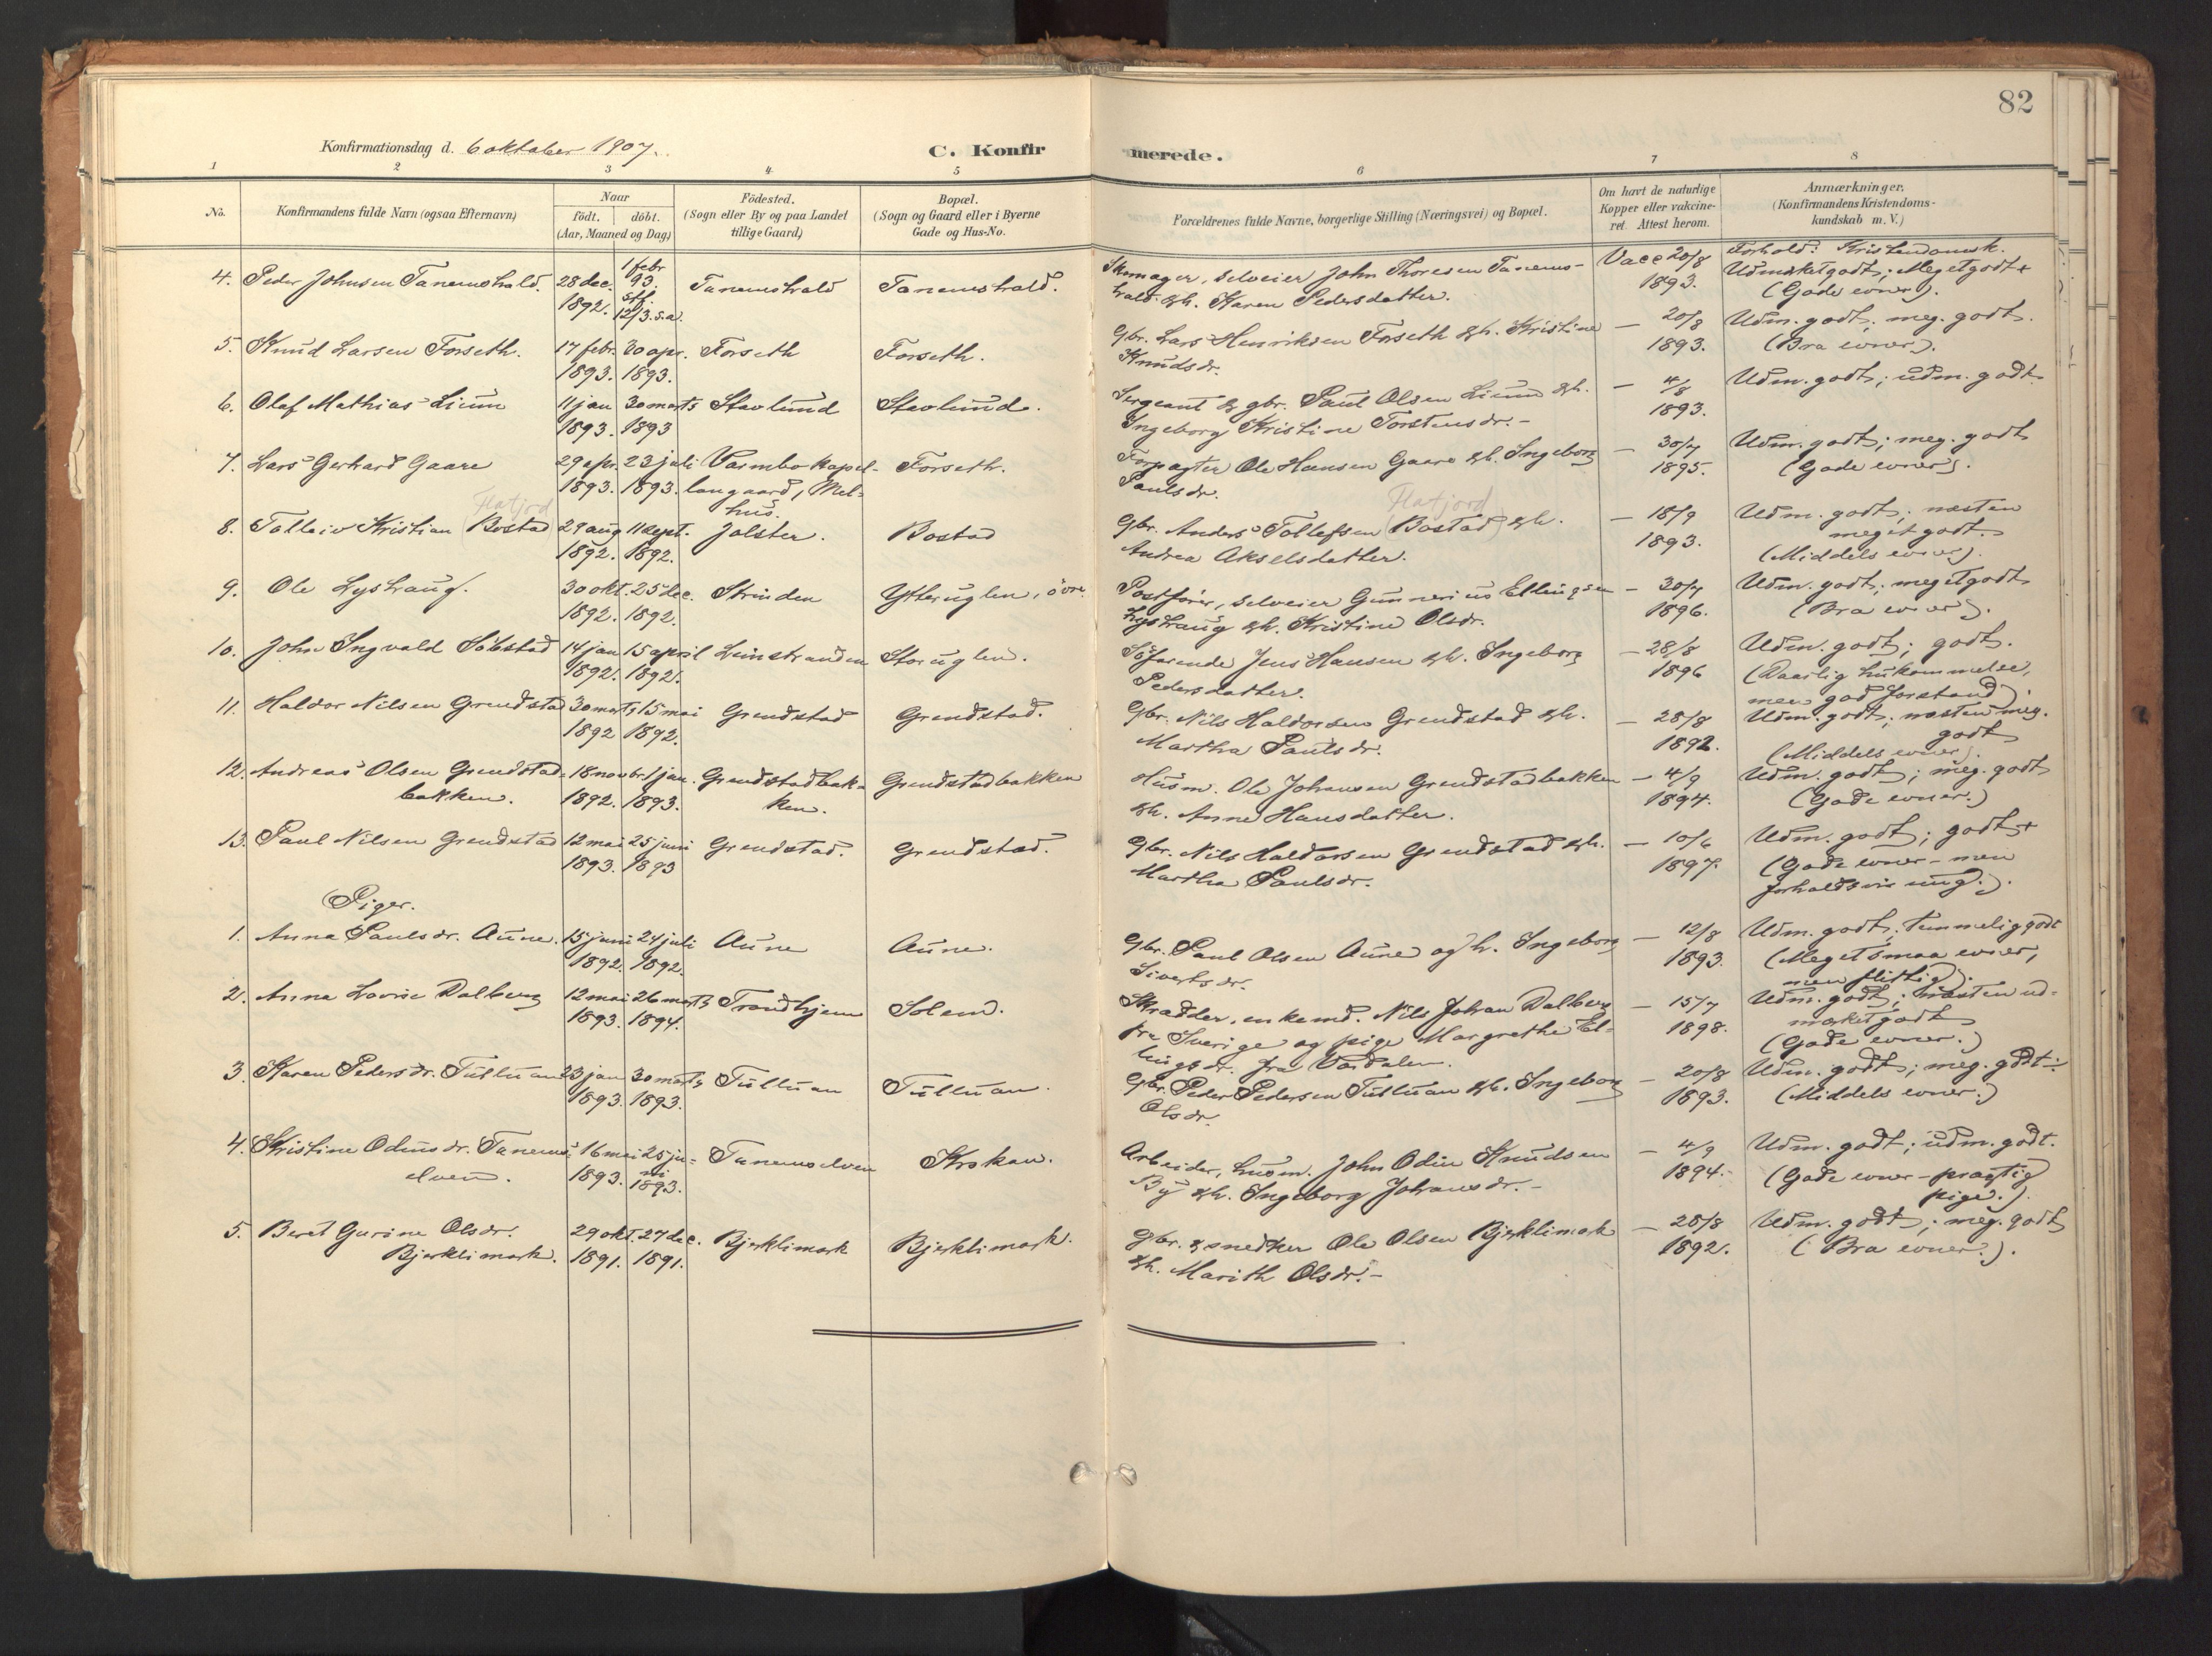 82
Konfirmationsdag d. 6 oktober 1907.
C. Konfirmerede.
1 2 3 4 5 6 7 8
No.
Konfirmandens fulde Navn (ogsaa Efternavn)
Naar
födt. döbt.
(Aar, Maaned og Dag)
Födested.
(Sogn eller By og paa Landet
tillige Gaard)
Bopæl.
(Sogn og Gaard eller i Byerne
Gade og Hus-No.
Forældrenes fulde Navne, borgerlige Stilling (Næringsvei) og Bopæl.
Om havt de naturlige
Kopper eller vakcine-
ret. Attest herom.
Anmærkninger.
(Konfirmandens Kristendoms-
kundskab m. V.)
Forhold: Kristendomsk.
4. Peder Johnsen Tanemshald. 28 dec. 1 febr Tanemshald Tanemshald. Skomager, selveier John Thoresen Tanems- Vacc 20/8 Udmerket godt; Meget godt +
1892. 93. stf. 12/3 s.a. hald &h. Karen Pedersdatter. 1893. (Gode evner).
5. Knud Larsen Forseth. 17 febr. 30 apr. Forseth Forseth. Gbr. Lars Henriksen Forseth &h. Kristine — 20/8 Udm. godt; meg. godt.
1893. 1893. Knudsdr. 1893. (Bra evner).
6. Olaf Mathias Lium 11 jan 30 marts Stavlund Stavlund. Sergeant & gbr. Paul Olsen Lium &h. — 4/8 Udm. godt; udm. godt.
1893. 1893 Ingeborg Kristine Torstensdr. - 1893.
7. Lars Gerhard Gaare 29 apr. 23 juli Vaimbo kapel- Forseth. Forpagter Ole Hansen Gaare &h. Ingeborg — 30/7 Udm. godt; meg. godt
1893. 1893. langaard, Mel- Paulsdr. 1895. (Gode evner).
hus.
Flatjord Flatjord
8. Tolleiv Kristian Bostad 29 aug 11 sept. Jølster. Bostad Gbr. Anders Tollefsen Bostad &h. — 18/9 Udm. godt; næsten
1892. 1892. Andrea Akselsdatter. 1893. meget godt.
(Middels evner).
9. Ole Lyshaug. 30 okt. 25 dec. Strinden Ytteruglen, övre. Postfører, selveier Gunnerius Ellingsen — 30/7 Udm. godt; meget godt
1892. 1892. Lyshaug &h. Kristine Olsdr. 1896. (Bra evner).
10. John Ingvald Söbstad 14 jan 15 april Leinstranden Storuglen. Söfarende Jens Hansen &h. Ingeborg — 28/8 Udm. godt; godt.
1892. 1892. Pedersdatter. 1896 (Daarlig hukommelse,
men god forstand).
11. Haldor Nilsen Grendstad 30 marts 15 mai Grendstad Grendstad. Gbr. Nils Haldorsen Grendstad &h. — 28/8 Udm. godt; næsten meg.
1892 1892. Martha Paulsdr. 1892. godt
(Middels evner).
12. Andreas Olsen Grendstad- 18 novbr. 1 jan. Grendstadbak- Grendstadbakken Husm. Ole Johansen Grendstadbakken — 4/9 Udm. godt; meg. godt
bakken. 1892. 1893. ken. &h. Anne Hansdatter. 1894. (Gode evner.)
13. Paul Nilsen Grendstad 12 mai 25 juni Grendstad. Grendstad. Gbr. Nils Haldorsen Grendstad &h. — 10/6 Udm. godt; godt +
1893. 1893 Martha Paulsdr. 1897. (Gode evner - men
forholdsvis ung.).
Piger.
1. Anna Paulsdr. Aune. 15 juni 24 juli Aune Aune. Gbr. Paul Olsen Aune og h. Ingeborg — 12/8 Udm. godt; temmelig godt
1892. 1892. Sivertsdr. 1893. (Meget smaa evner,
men flittig).
2. Anna Lovise Dalberg 12 mai 26 marts Trondhjem Solem. Skrædder, enkemd. Nils Johan Dalberg — 15/7 Udm. godt; næsten ud-
1893. 1894. fra Sverige og pige Margrethe El- 1898. merket godt
lingsdr. fra Værdalen. (Gode evner.)
3. Karen Pedersdr. Tulluan 23 jan 30 marts Tulluan Tulluan. Gbr. Peder Pedersen Tulluan &h. Ingeborg — 20/8 Udm. godt; meg. godt ÷
1893. 1893. Olsdr. 1893. (Middels evner.)
4. Kristine Odinsdr. Tanems- 16 mai 25 ju- Tanemselven Krokan. Arbeider, husm. John Odin Knudsen — 4/9 Udm. godt; udm. godt.
elven. 1893. ni 1893. By &h. Ingeborg Johansdr. - 1894. (Gode evner - prægtig
pige.).
5. Beret Gurine Olsdr. 29 okt. 27 dec. Bjerklimark Bjerklimark. Gbr. & snedker Ole Olsen Bjerklimark — 28/8 Udm. godt; meg. godt
Bjerklimark. 1891. 1891. &h. Marith Olsdr. - 1892. (Bra evner.).